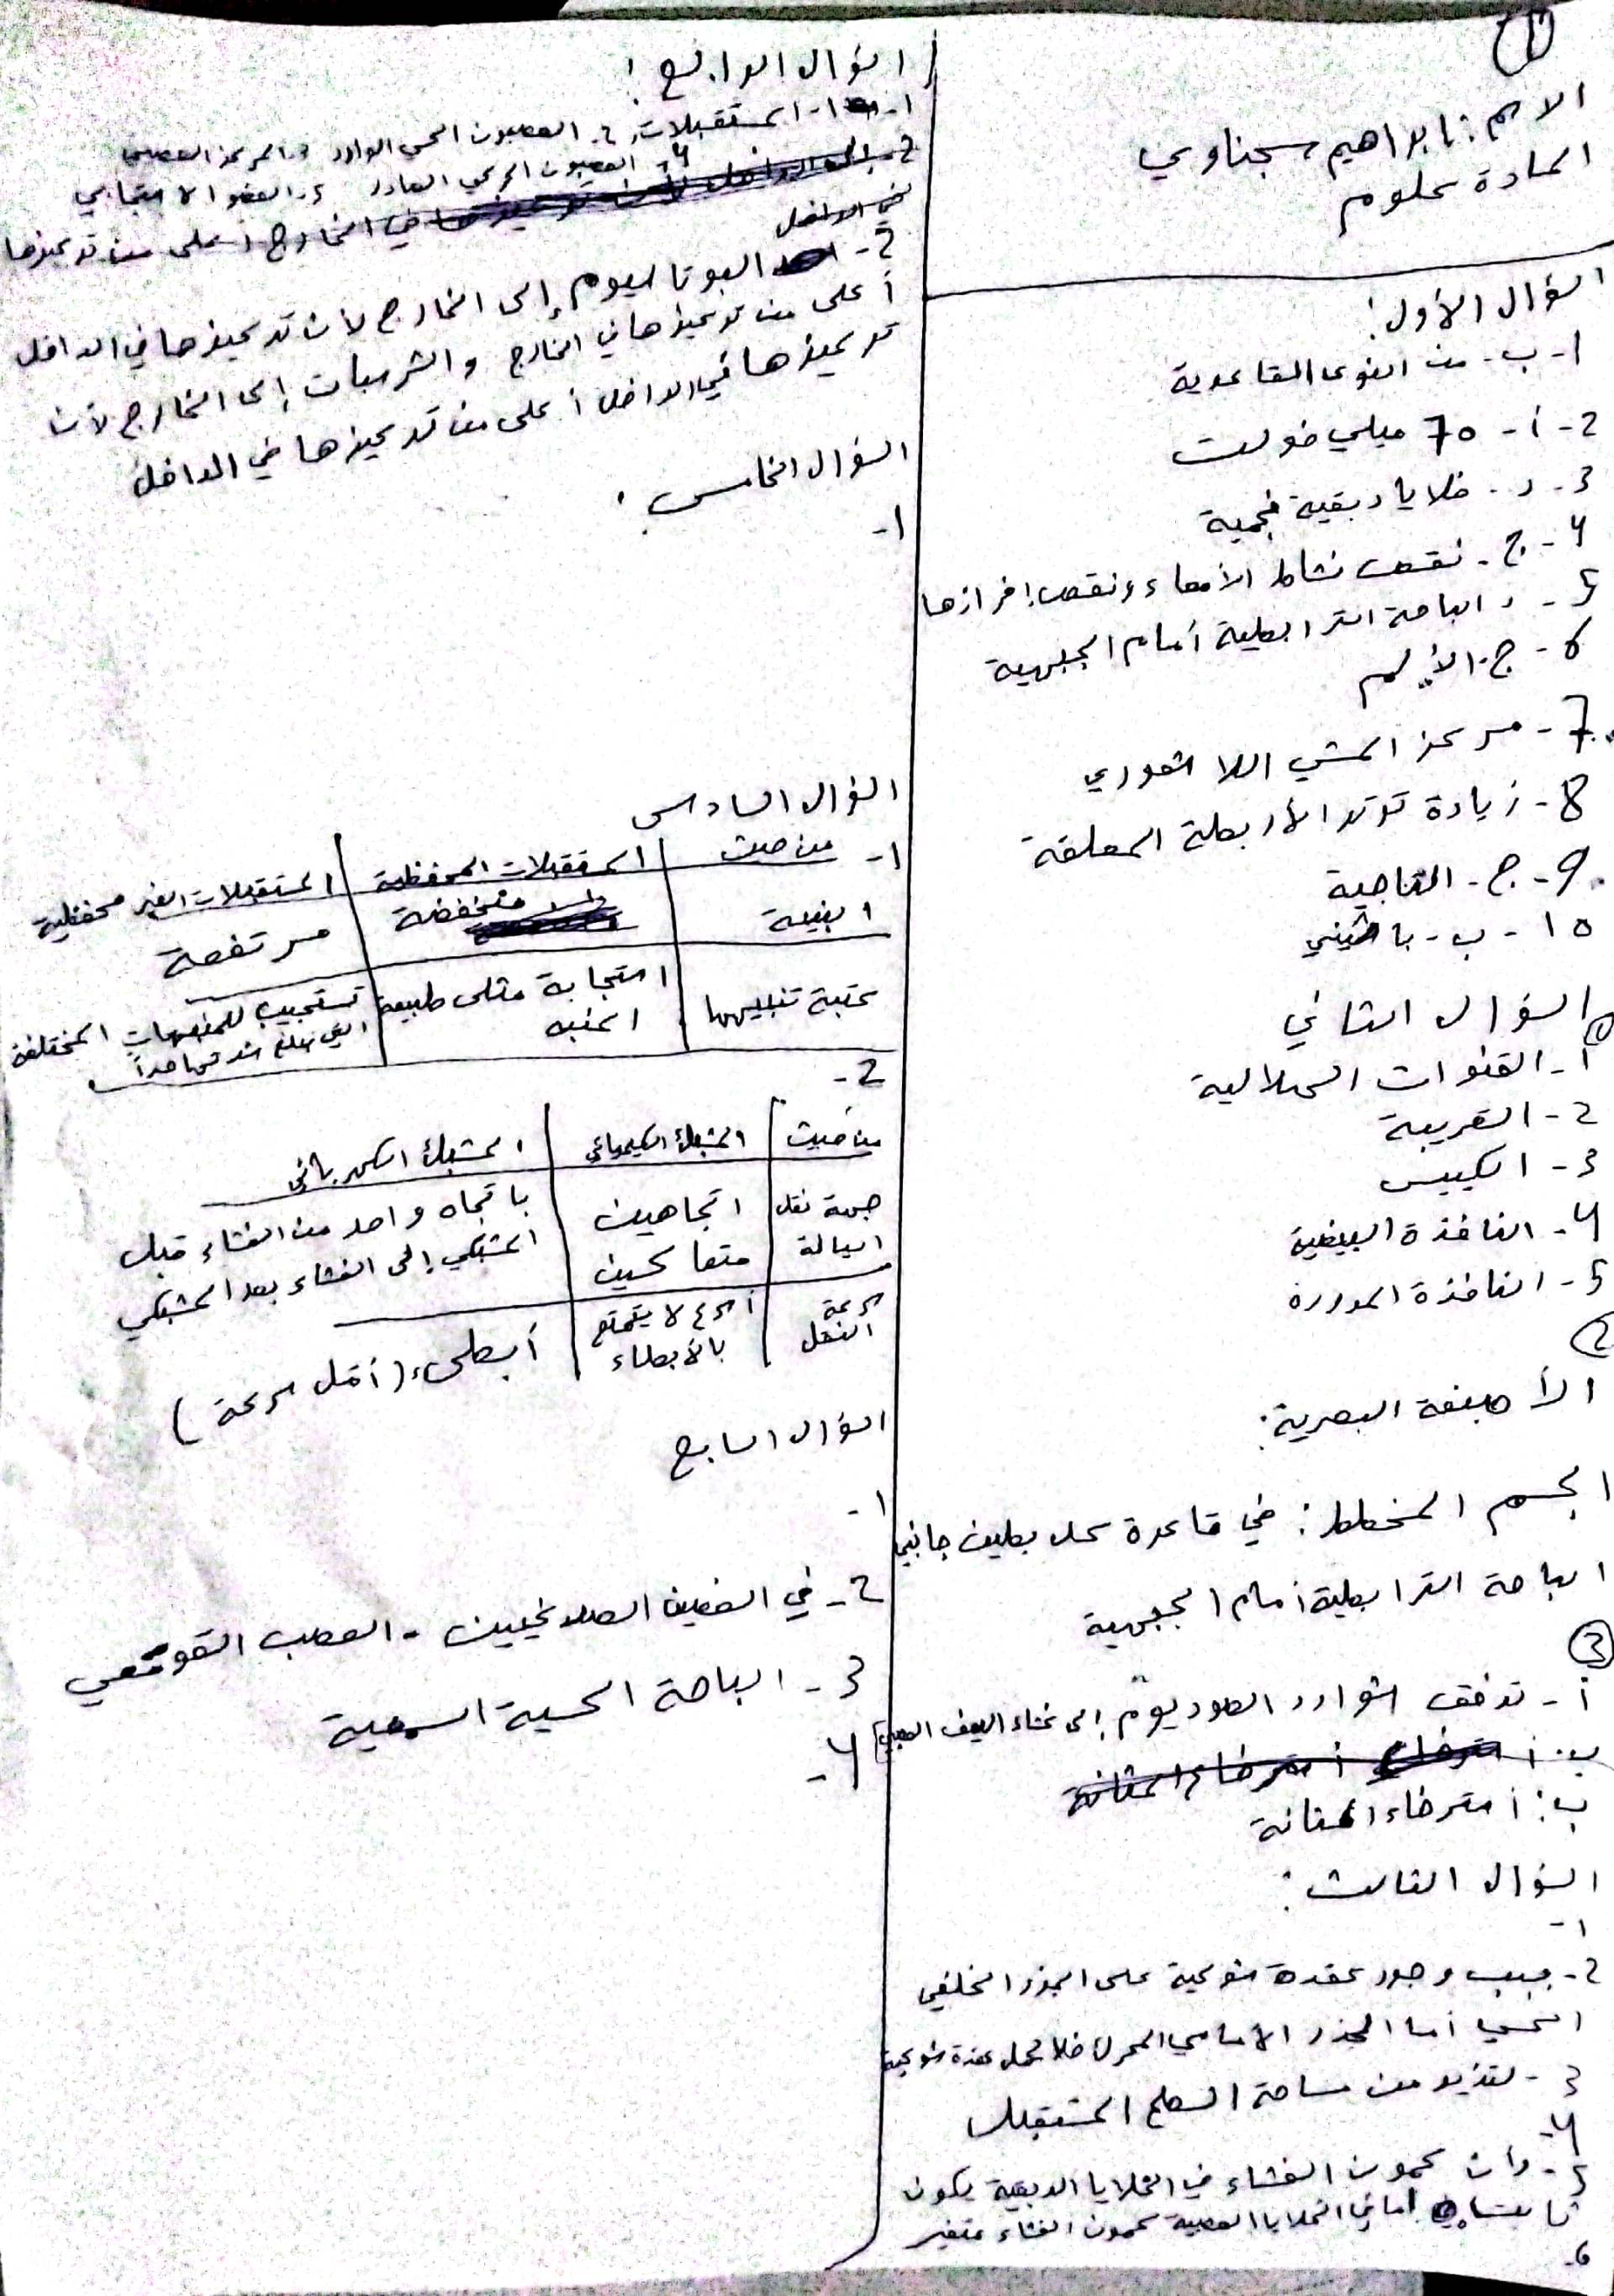 1
الاسم: ابراهيم سجناوي
المادة علوم
السؤال الأول:
1- ب- من النوى القاعدية
2- أ- 70 ميلي فولت
3- د- خلايا دبقية نجمية
4- ج- نقص نشاط الأمعاء ونقص إفرازها
5- د الباحة الترابطية أمام الجبهية
6- ج- الألم
7- مركز المشي اللاشعوري
8- زيادة توتر الأربطة المعلقة
9- ج- التاجية
10- ب- باشيني
السؤال الثاني
1
أ- القنوات الهلالية
2- القريبة
3- الكييس
4- النافذة البيضية
5- النافذة المدورة
2
الأصبغة البصرية:
الجسم المخطط: في قاعدة كل بطين جانبي
الباحة الترابطية أمام الجبهية
3
أ- تدفق شوارد الصوديوم إلى غشاء الليف العصبي
ب: استرخاء المثانة
ب: استرخاء المثانة
السؤال الثالث:
1-
2- بسبب وجود عقدة شوكية على الجذر الخلفي
الحسي أما الجذر الأمامي المحرك فلا يحمل عقدة شوكية
3- لتزيد من مساحة السطح المستقبل
4-
5- لأن كمون الغشاء في الخلايا الدبقية يكون
ثابت أما في الخلايا العصبية كمون الغشاء متغير
6-
السؤال الرابع:
1- 1- المستقبلات 2. العصبون الحسي الوارد 3. المركز العصبي
4. العصبون الحركي الصادر 5. العضو الاستجابي
في الخارج أعلى من تركيزها
في الداخل
2- البوتاسيوم إلى الخارج لأن تركيزها في الداخل
أعلى من تركيزها في الخارج والشرسبات إلى الخارج لأن
تركيزها في الداخل أعلى من تركيزها في الداخل
السؤال الخامس:
1-
السؤال السادس
1- من حيث | المستقبلات المحفظية | المستقبلات الغير محفظية
البنية | منخفضة | مرتفعة
عتبة تنبيهها | استجابة مثلى طبيعة | تستجيب للمنبهات المختلفة
المنبه | التي تبلغ شدتها حداً
2-
من حيث | المشبك الكيميائي | المشبك الكهربائي
جهة نقل | اتجاهين | باتجاه واحد من الغشاء قبل
السيالة | متعاكسين | المشبكي إلى الغشاء بعد المشبكي
سرعة | أسرع لا يتمتع | أبطىء (أقل سرعة)
النقل | بالأبطاء
السؤال السابع
1-
2- في الفصين الصدغيين - العصب القوقعي
3- الباحة الحسية السمعية
4-